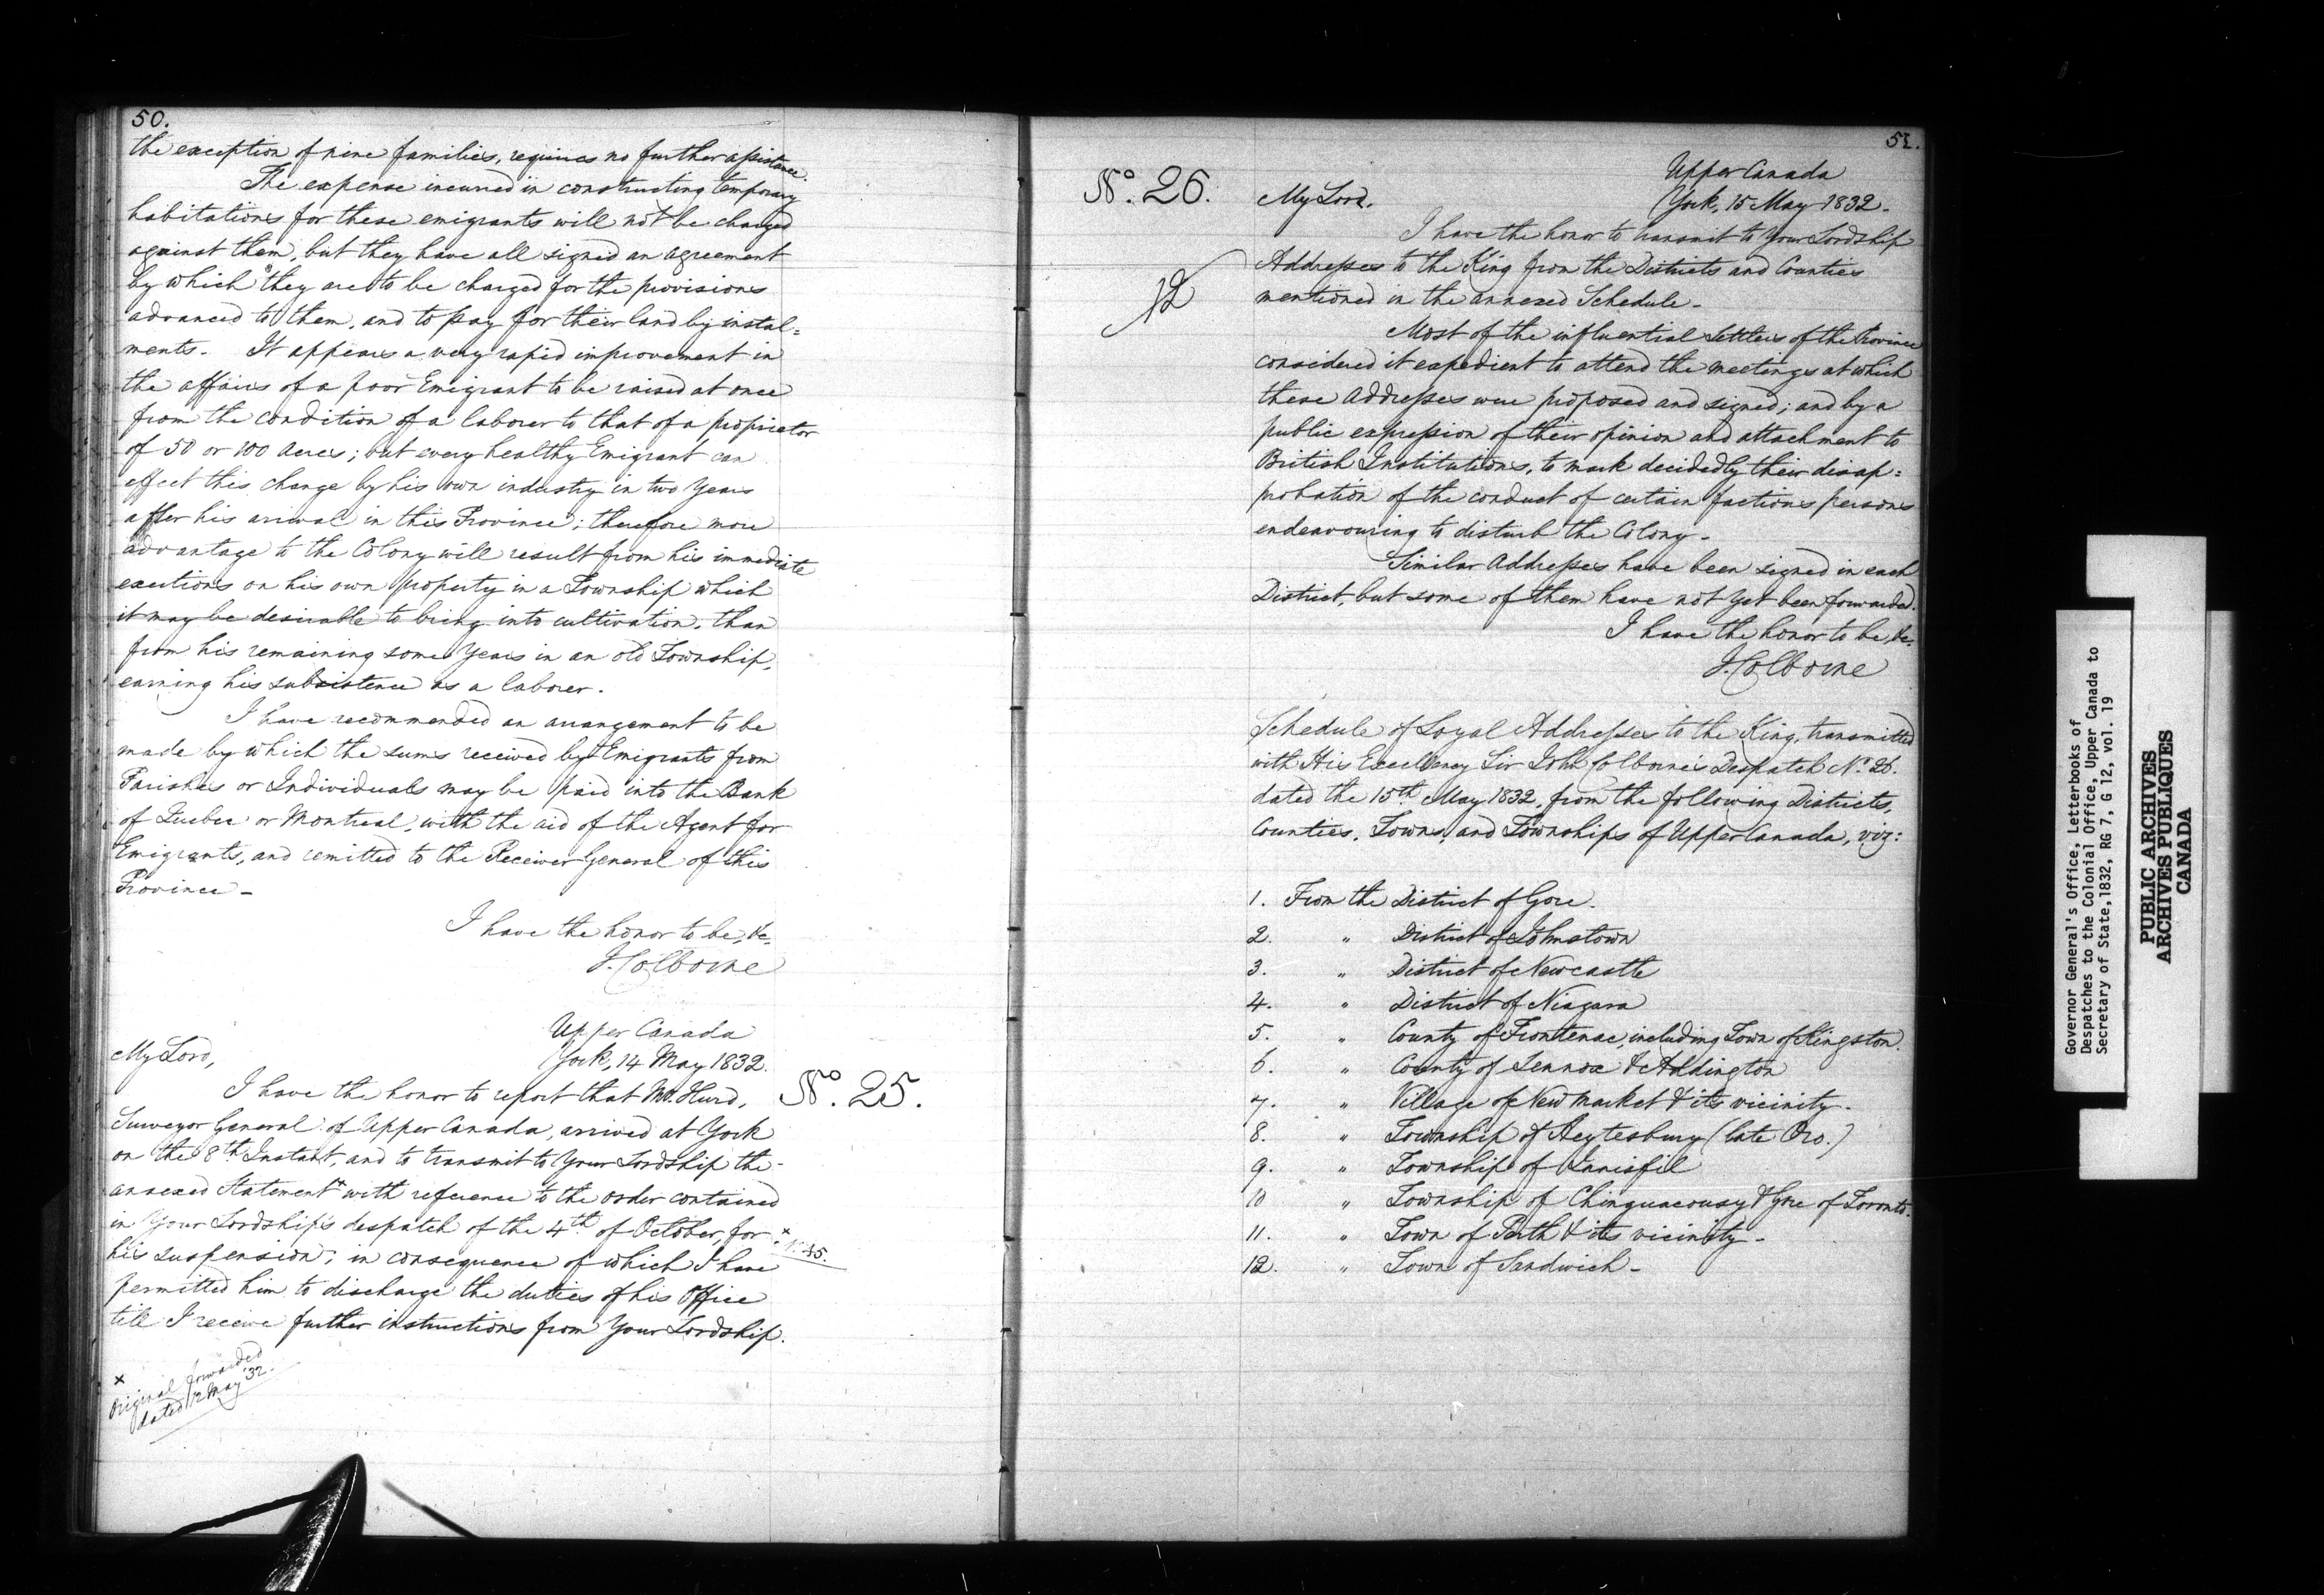 50.
the exception of nine families, requires no further assistance.
The expense incurred in constructing temporary
habitations for these emigrants will not be charged
against them, but they have all signed an agreement
by which they are to be charged for the provisions
advanced to them, and to pay for their land by instal=
ments. It appears a very rapid improvement in
the affairs of a poor Emigrant to be raised at once
from the condition of a laborer to that of a proprietor
of 50 or 100 Acres; but every healthy Emigrant can
effect this change by his own industry in two Years
after his arrival in this Province; therefore more
advantage to the Colony will result from his immediate
exertions on his own property in a Township which
it may be desirable to bring into cultivation, than
from his remaining some Years in an old Township,
earning his subsistence as a laborer.
I have recommended an arrangement to be
made by which the sums received by Emigrants from
Parishes or Individuals may be paid into the Bank
of Quebec or Montreal, with the aid of the Agent for
Emigrants, and remitted to the Receiver General of this
Province -
I have the honor to be, &c.
J. Colborne
Upper Canada
York, 14 May 1832.
My Lord,
No. 25.
I have the honor to report that Mr. Hurd,
Surveyor General of Upper Canada, arrived at York
on the 8th Instant, and to transmit to Your Lordship the
annexed Statement x with reference to the order contained
in Your Lordship's despatch of the 4th of October, for x
his suspension; in consequence of which I have
No. 45.
permitted him to discharge the duties of his Office
till I receive further instructions from Your Lordship.
x
Original forwarded
dated 12 May '32.
51.
No. 26.
Upper Canada
York, 15 May 1832.
My Lord.
I have the honor to transmit to Your Lordship
Addresses to the King from the Districts and Counties
12
mentioned in the annexed Schedule -
Most of the influential Settlers of the Province
considered it expedient to attend the meetings at which
these Addresses were proposed and signed; and by a
public expression of their opinion and attachment to
British Institutions, to mark decidedly their disap=
probation of the conduct of certain factious persons
endeavouring to disturb the Colony -
Similar Addresses have been signed in each
District, but some of them have not yet been forwarded.
I have the honor to be, &c.
J. Colborne
Schedule of Loyal Addresses to the King, transmitted
with His Excellency Sir John Colborne's Despatch No. 26.
dated the 15th May 1832, from the following Districts,
Counties, Towns, and Townships of Upper Canada, viz:
1. From the District of Gore.
2. " District of Johnstown
3. " District of Newcastle
4. " District of Niagara
5. " County of Frontenac, including Town of Kingston.
6. " County of Lennox & Addington
7. " Village of New Market & its vicinity -
8. " Township of Heytesbury (late Oro.)
9. " Township of Innisfil
10 " Township of Chinguacousy & Gore of Toronto.
11. " Town of Perth & its vicinity -
12. " Town of Sandwich -
Governor General's Office, Letterbooks of
Despatches to the Colonial Office, Upper Canada to
Secretary of State, 1832, RG 7, G 12, vol. 19
PUBLIC ARCHIVES
ARCHIVES PUBLIQUES
CANADA